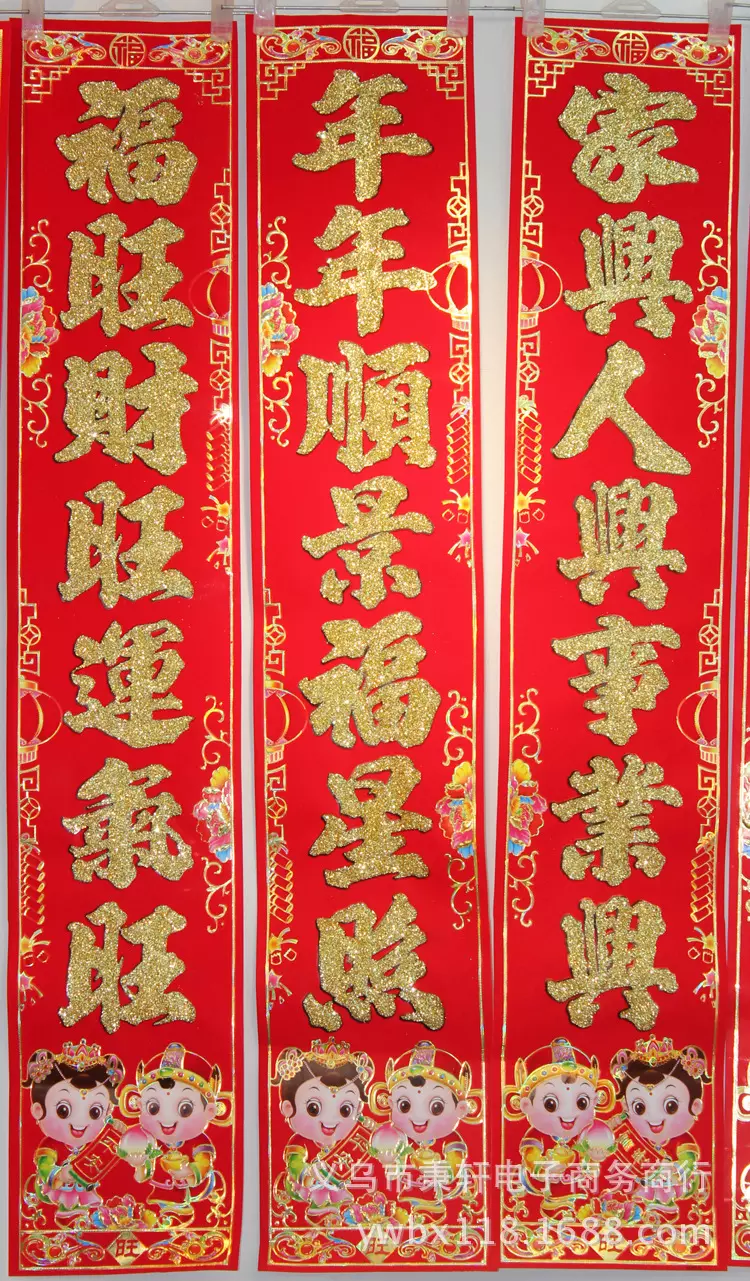 福
家興人興事業興
旺
福
年年順景福星照
旺
福
福旺財旺運氣旺
旺
义乌市秉轩电子商务商行
ywbx118.1688.com